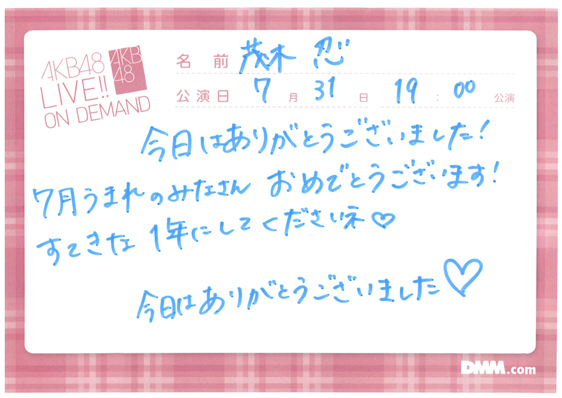 AKB48
LIVE!!
ON DEMAND
AKB
48
名前 茂木 忍
公演日 7月31日 19:00公演
今日はありがとうございました!
7月うまれのみなさん おめでとうございます!
すてきな 1年にしてくださいネ♡
今日はありがとうございました♡
DMM.com